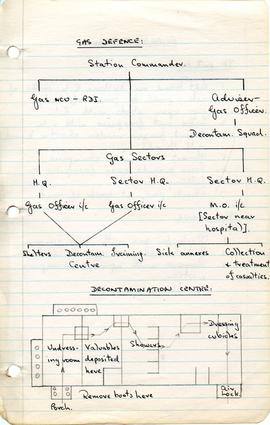 GAS DEFENCE:
Station Commander.
Gas NCO - RDI.
Adviser -
Gas Officer.
Decontam. Squad.
Gas Sectors
H.Q. Sector H.Q. Sector H.Q.
Gas Officer i/c Gas Officer i/c M.O. i/c
[Sector near
hospital].
Shelters Decontam. Training. Side annexes Collection
Centre & treatment
of casualties.
DECONTAMINATION CENTRE:
Undress-
ing room
Valuables
deposited
here
Showers.
Dressing
cubicles
Air
Lock.
Remove boots here
Porch.